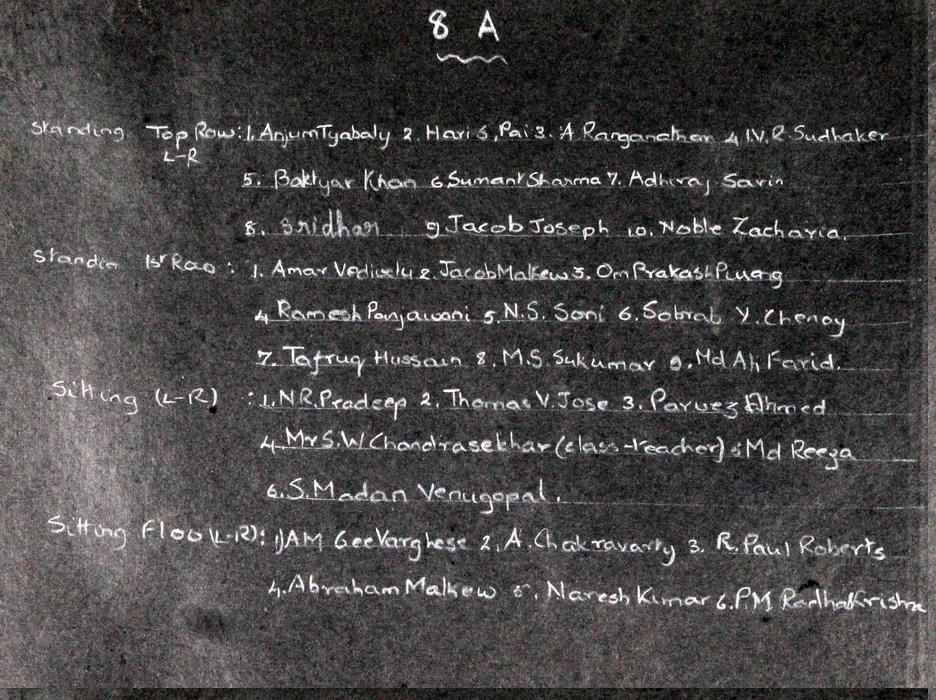 8 A
Standing Top Row: 1. Anjum Tyabaly 2. Hari S. Pai 3. A Ranganathan 4 I.V.R. Sudhaker
L-R
5. Baktyar Khan 6 Sumant Sharma 7. Adhiraj Sarin
8. Sridhar 9 Jacob Joseph 10. Noble Zacharia.
Standin 1st Roo : 1. Amar 2. Jacob Mathew 3. Om Prakash
4 Ramesh Panjawani 5. N.S. Soni 6. Sobrab Y. Chenoy
7. Tafruq Hussain 8. M.S. Sukumar 9. Md Ali Farid.
Sitting (L-R) : 1. N.R. Pradeep 2. Thomas V. Jose 3. Parvez Ahmed
4. Mr S.W Chandrasekhar (class-teacher) 5 Md Reeza
6. S. Madan Venugopal.
Sitting Floo (L-R): 1) AM GeeVarghese 2. A. Chakravarty 3. R. Paul Roberts
4. Abraham Mathew 5. Naresh Kumar 6. P.M RadhaKrishna